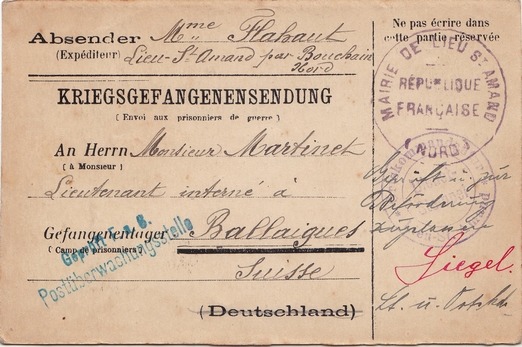 Absender Mme Flahaut
(Expéditeur) Lieu-St-Amand par Bouchain
Nord
Ne pas écrire dans
cette partie réservée
MAIRIE DE LIEU ST AMAND
RÉPUBLIQUE
FRANÇAISE
(NORD)
KRIEGSGEFANGENENSENDUNG
( Envoi aux prisonniers de guerre )
An Herrn Monsieur Martinet
( à Monsieur )
Lieutenant interné à
Gefangenenlager Ballaigues
( Camp de prisonniers )
Suisse
(Deutschland)
Geprüft
Postüberwachungsstelle
Geprüft u. zur
Beförderung
zugelassen
Siegel.
Lt. u.